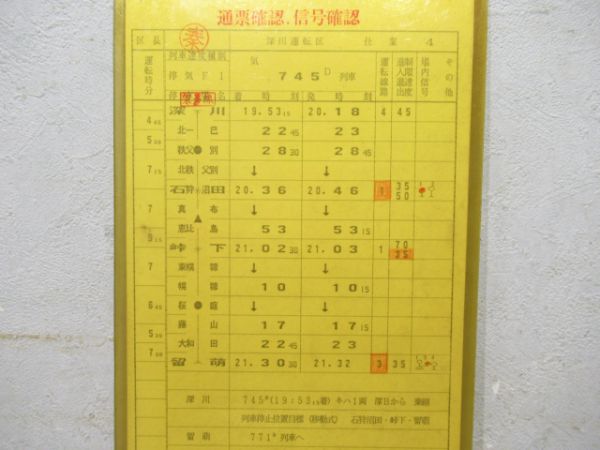 通票確認、信号確認
区長 深川運転区 仕業 4
運転時分 列車速度種別 停気F1 気 745D 列車 運転線路 制限速度 進入進出 場内信号 その他
停車場名 着時刻 発時刻
深川 19.53 15 20.18 4 45
4 45
北一已 22 45 23
5 30
秩父別 28 30 28 45
北秩父別 ↓ ↓
7 15
石狩沼田 20.36 20.46 1 35 50
真布 ↓ ↓
7
恵比島 53 53 15
9 15
峠下 21.02 30 21.03 1 70 35
東幌糠 ↓ ↓
7
幌糠 10 10 15
桜庭 ↓ ↓
6 45
藤山 17 17 15
5 30
大和田 22 45 23
7 30
留萌 21.30 30 21.32 3 35
深川 745D(19:53 15着) キハ1両 深日から
列車停止位置目標(移動式) 石狩沼田・峠下・留萌
留萌 771D列車へ